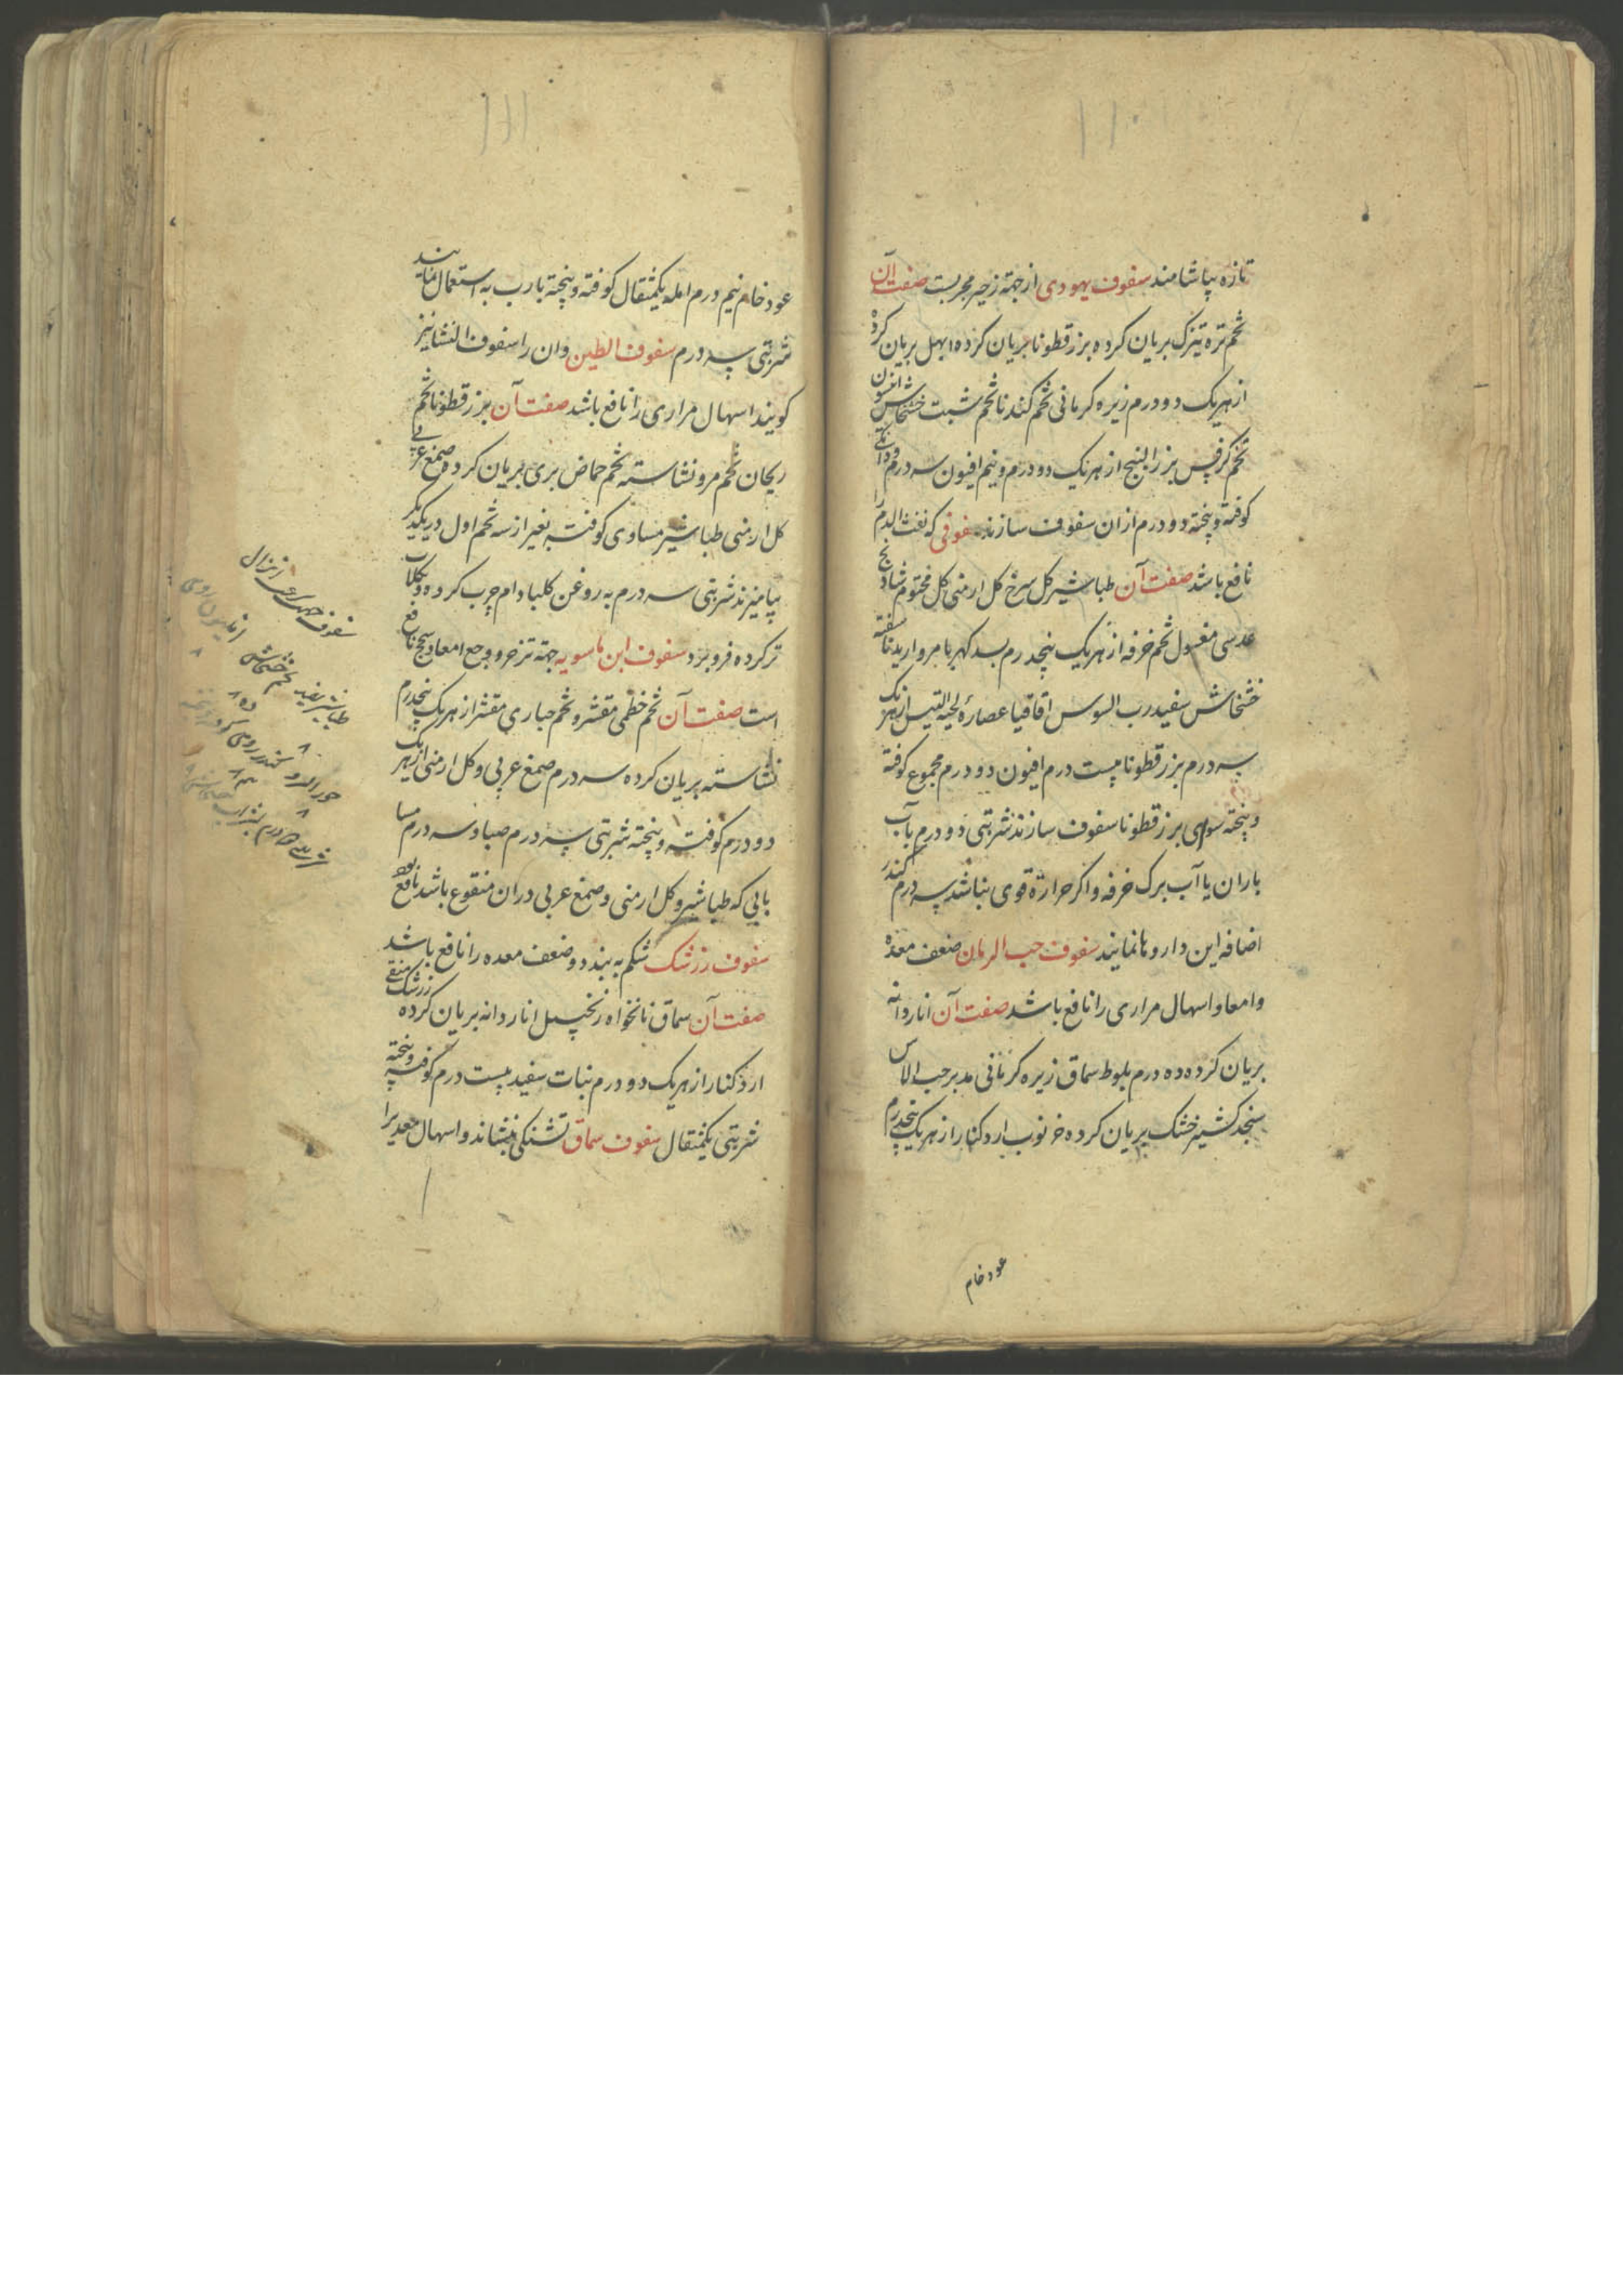 تازه بیاشامند سفوف یهودی از جهة زحیر مجربست صفت آن
تخم تره تیزک بریان کرده بزرقطونا بریان کرده ابهل بریان کرده
از هر یک دو درم زیره کرمانی تخم کندنا تخم شبت خشخاش انیسون
تخم کرفس بزرالبنج از هر یک دو درم و نیم افیون سه درم و دانکی
کوفته و بیخته دو درم ازان سفوف سازند سفوفی که نفث الدم را
نافع باشد صفت آن طباشیر کل سرخ کل ارمنی کل مختوم شادنج
عدسی مغسول تخم خرفه از هر یک پنجدرم بسد کهربا مروارید ناسفته
خشخاش سفید رب السوس اقاقیا عصارهٔ لحیة التیس از هر یک
سه درم بزرقطونا بیست درم افیون دو درم مجموع کوفته
و بیخته سوای بزرقطونا سفوف سازند شربتی دو درم بآب
باران یا آب برک خرفه و اکر حرارة قوی نباشد سه درم کندر
اضافه این داروها نمایند سفوف حب الرمان ضعف معده
و امعا و اسهال مراری را نافع باشد صفت آن اناردانه
بریان کرده ده درم بلوط سماق زیره کرمانی مدبر حب الاس
سنجد کشنیز خشک بریان کرده خرنوب ارد کنار از هر یک پنجدرم
عود خام
عود خام نیم درم امله یکمثقال کوفته و بیخته بارب به استعمال نمایند
شربتی سه درم سفوف الطین وان را سفوف النشا نیز
کویند اسهال مراری را نافع باشد صفت آن بزرقطونا تخم
ریحان تخم مرو نشاسته تخم حماض بری بریان کرده صمغ عربی
کل ارمنی طباشیر مساوی کوفته بغیر از سه تخم اول در یکدیکر
بیامیزند شربتی سه درم به روغن کلبادام چرب کرده و بکلاب
تر کرده فرو برد سفوف ابن ماسویه جهة تزحر و وجع امعا و سحج نافع
است صفت آن تخم خطمی مقشر و تخم خیاری مقشر از هر یک پنجدرم
نشاسته بریان کرده سه درم صمغ عربی و کل ارمنی از هر یک
دو درم کوفته و بیخته شربتی سه درم صباح و سه درم مسا
بابی که طباشیر و کل ارمنی و صمغ عربی دران منقوع باشد نافع بود
سفوف زرشک شکم به بندد و ضعف معده را نافع باشد
صفت آن سماق نانخواه زنجبیل اناردانه بریان کرده زرشک منقی
ارد کنار از هر یک دو درم نبات سفید بیست درم کوفته و بیخته
شربتی یکمثقال سفوف سماق تشنکی بنشاند و اسهال معدیرا
سفوف جهت
طباشیر سفید تخم خشخاش